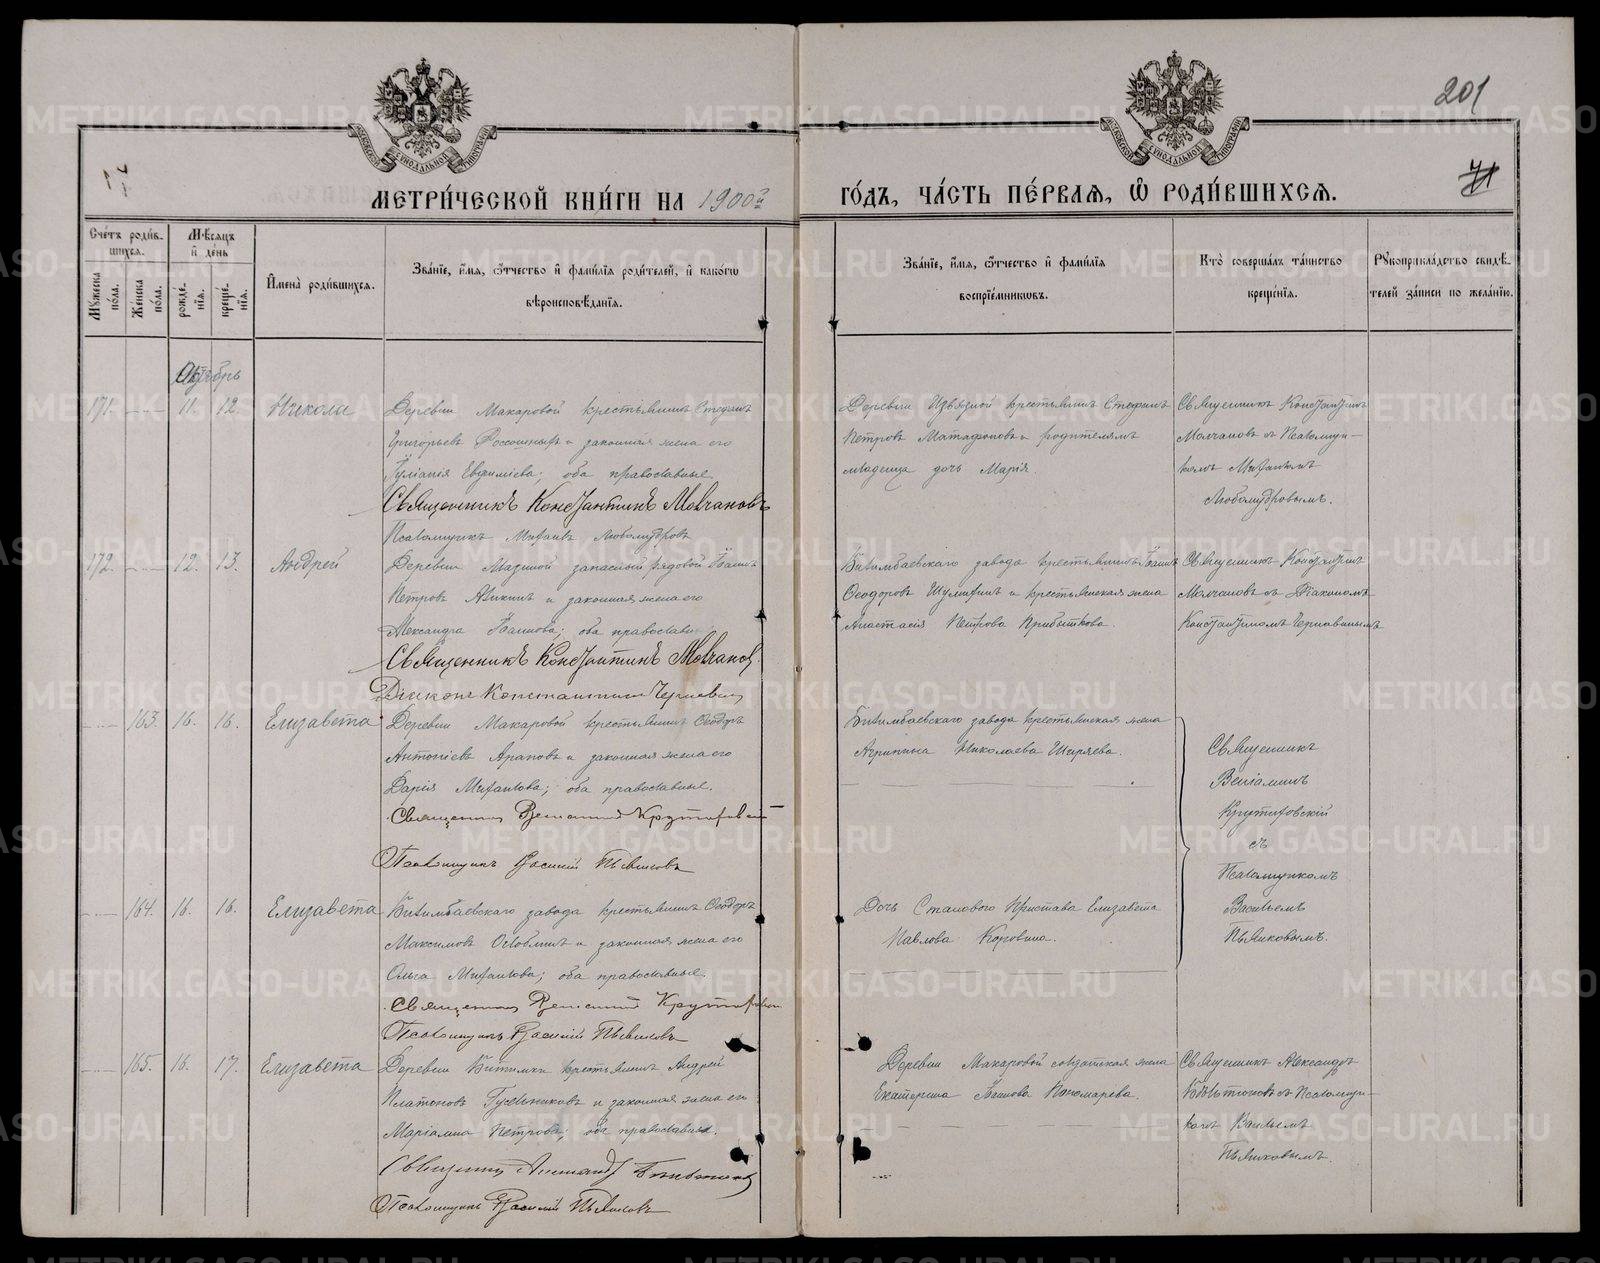 201
71
МЕТРИ́ЧЕСКОЙ КНИ́ГИ НА 1900й
ГО́ДЪ, ЧА́СТЬ ПЕ́РВАѦ, Ѽ РОДИ́ВШИХСѦ.
Сче́тъ роди́вшихся.
Мѣ́сяцъ и де́нь
Му́жеска по́ла.
Же́нска по́ла.
рожде́нїѧ.
креще́нїѧ.
И҆мена̀ роди́вшихсѧ.
Зва́нїе, и҆́мѧ, ѻ҆́тчество и҆ фами́лїѧ роди́телей, и҆ како́гѡ вѣроисповѣ́данїѧ.
Зва́нїе, и҆́мѧ, ѻ҆́тчество и҆ фами́лїѧ воспрїе́мникѡвъ.
Кто̀ соверша́лъ та́инство креще́нїѧ.
Рꙋкоприкла́дство свидѣ́телей за́писи по жела́нїю.
Октябрь
171. 11. 12. Никола
Деревни Макаровой крестьянинъ Стефанъ
Григорьевъ и законная жена его
Іуліанія Евфиміева; оба православные.
Священникъ Константинъ Молчановъ
Псаломщикъ Михаилъ Любомудровъ
Деревни крестьянинъ Стефанъ
Петровъ Матафоновъ и родителямъ
младенца дочь Марія.
Священникъ Константинъ
Молчановъ съ Псаломщи-
комъ Михаиломъ
Любомудровымъ.
172. 12. 13. Андрей
Деревни запасный рядовой Іоаннъ
Петровъ и законная жена его
Александра Іоаннова; оба православные
Священникъ Константинъ Молчановъ
Діаконъ Константинъ Чернавинъ
Билимбаевскаго завода крестьянинъ Іоаннъ
Ѳеодоровъ Шумихинъ и крестьянская жена
Анастасія Петрова Прибыткова.
Священникъ Константинъ
Молчановъ съ Діакономъ
Константиномъ Чернавинымъ
163. 16. 16. Елизавета
Деревни Макаровой крестьянинъ Ѳеодоръ
Антоніевъ Араповъ и законная жена его
Дарія Михаилова; оба православные.
Священникъ Веніаминъ Крутиховскій
Псаломщикъ Василій Пьянковъ
Билимбаевскаго завода крестьянская жена
Агрипина Николаева Ширяева.
Священникъ
Веніаминъ
Крутиховскій
съ
Псаломщикомъ
Васильемъ
Пьянковымъ.
164. 16. 16. Елизавета
Билимбаевскаго завода крестьянинъ Ѳеодоръ
Максимовъ и законная жена его
Ольга Михаилова; оба православные.
Священникъ Веніаминъ Крутиховскій
Псаломщикъ Василій Пьянковъ
Дочь Становаго Пристава Елизавета
Павлова Коровина.
165. 16. 17. Елизавета
Деревни Битимки крестьянинъ Андрей
Платоновъ Гусельниковъ и законная жена его
Маріамна Петрова; оба православные.
Священникъ Александръ
Псаломщикъ Василій Пьянковъ
Деревни Макаровой солдатская жена
Екатерина Іоаннова Пономарева.
Священникъ Александръ
съ Псаломщи-
комъ Васильемъ
Пьянковымъ.
METRIKI.GASO-URAL.RU